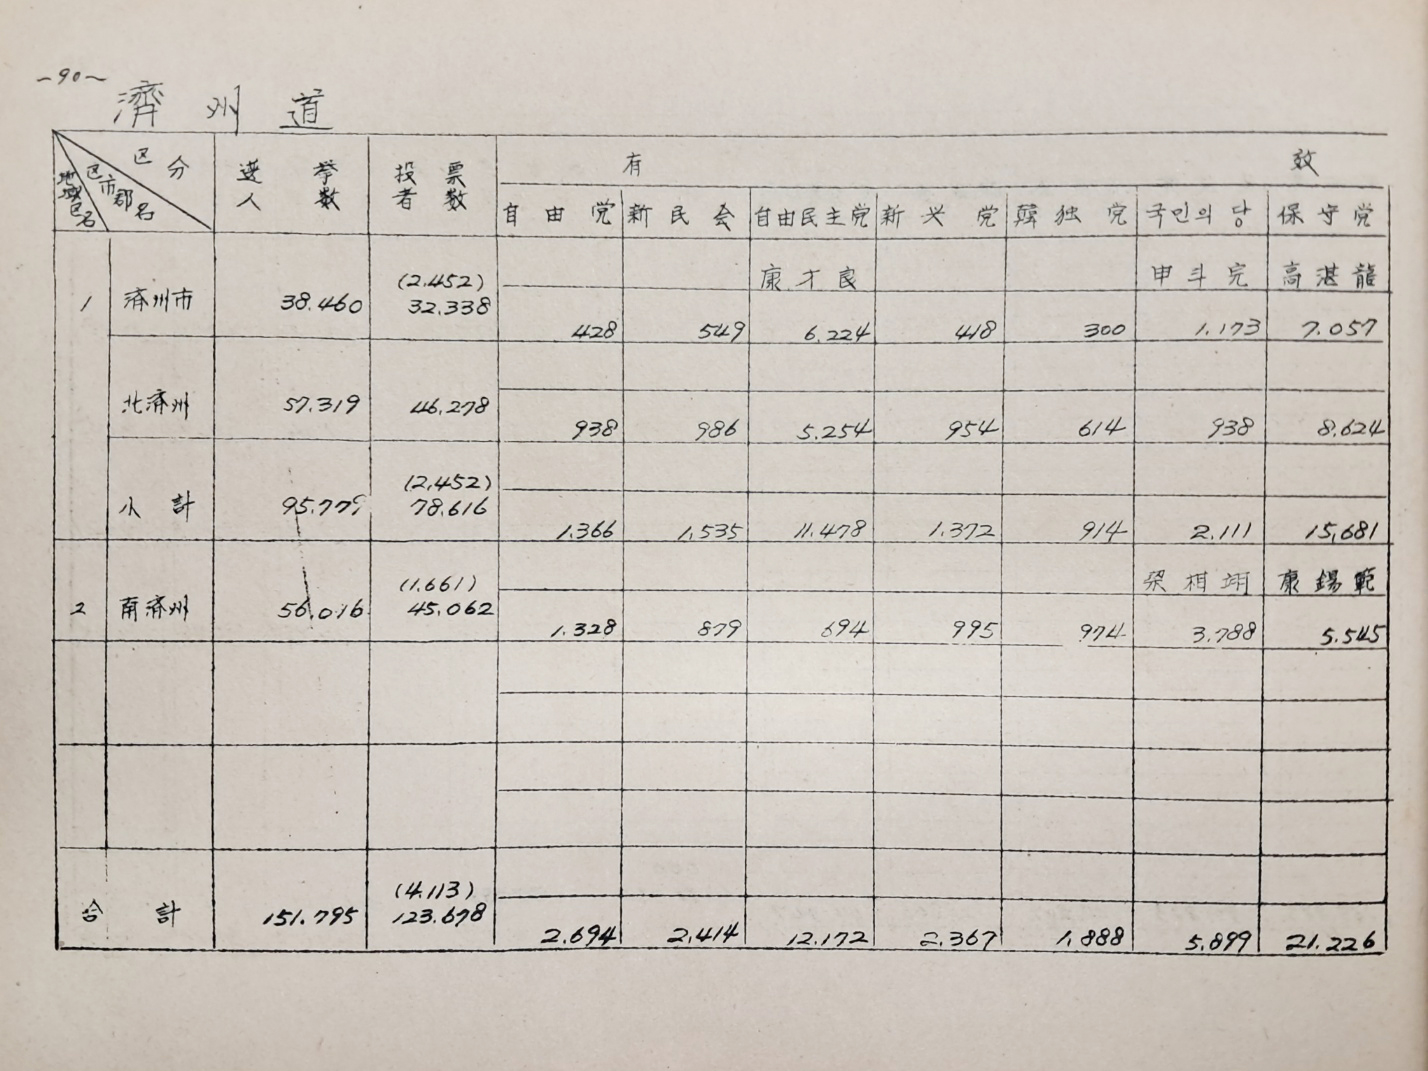 ~90~
濟州道
区分
区市郡名
地域区名
選挙人数
投票者数
有
效
自由党
新民会
自由民主党
新兴党
韓独党
국민의당
保守党
康才良
申斗完
高湛龍
1
済州市
38.460
(2.452)
32.338
428
549
6.224
418
300
1.173
7.057
北済州
57.319
46.278
938
986
5.254
954
614
938
8.624
小計
95.779
(2.452)
78.616
1.366
1.535
11.478
1.372
914
2.111
15,681
梁相翊
康錫範
2
南済州
56.016
(1.661)
45.062
1.328
879
694
995
974
3.788
5.545
合計
151.795
(4.113)
123.678
2.694
2.414
12.172
2.367
1.888
5.899
21.226